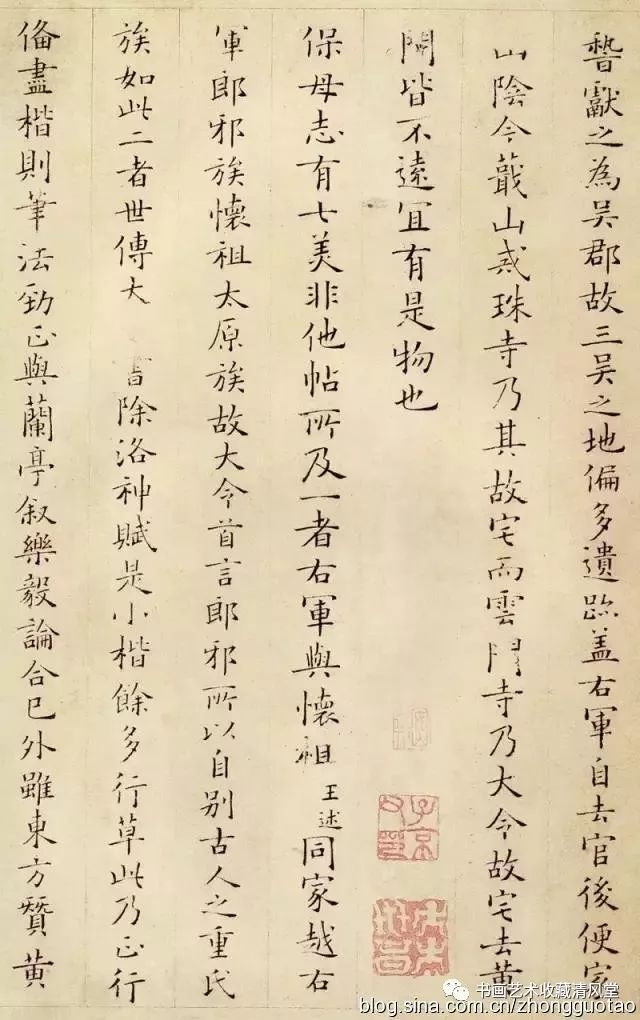 獻之為吳郡故三吳之地偏多遺跡盖右軍自去官後便家
山陰今蕺山戒珠寺乃其故宅而雲門寺乃大令故宅去黄
閍皆不遠宜有是物也
保母志有七美非他帖所及一者右軍與懷祖王述同家越右
軍郎邪族懷祖太原族故大令首言郎邪所以自别古人之重氏
族如此二者世傳大 書除洛神賦是小楷餘多行草此乃正行
俻盡楷則筆法勁正與蘭亭叙樂毅論合已外雖東方贊黄
书画艺术收藏清风堂
blog.sina.com.cn/zhongguotao